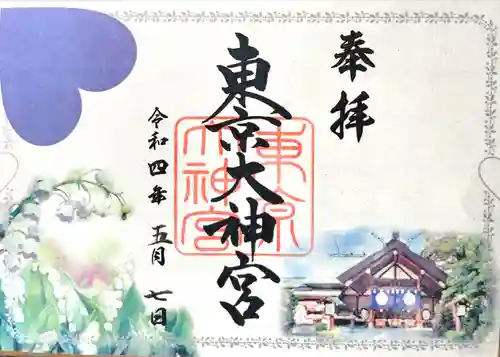 奉拝
東京大神宮
東京
大神宮
令和四年 五月 七日